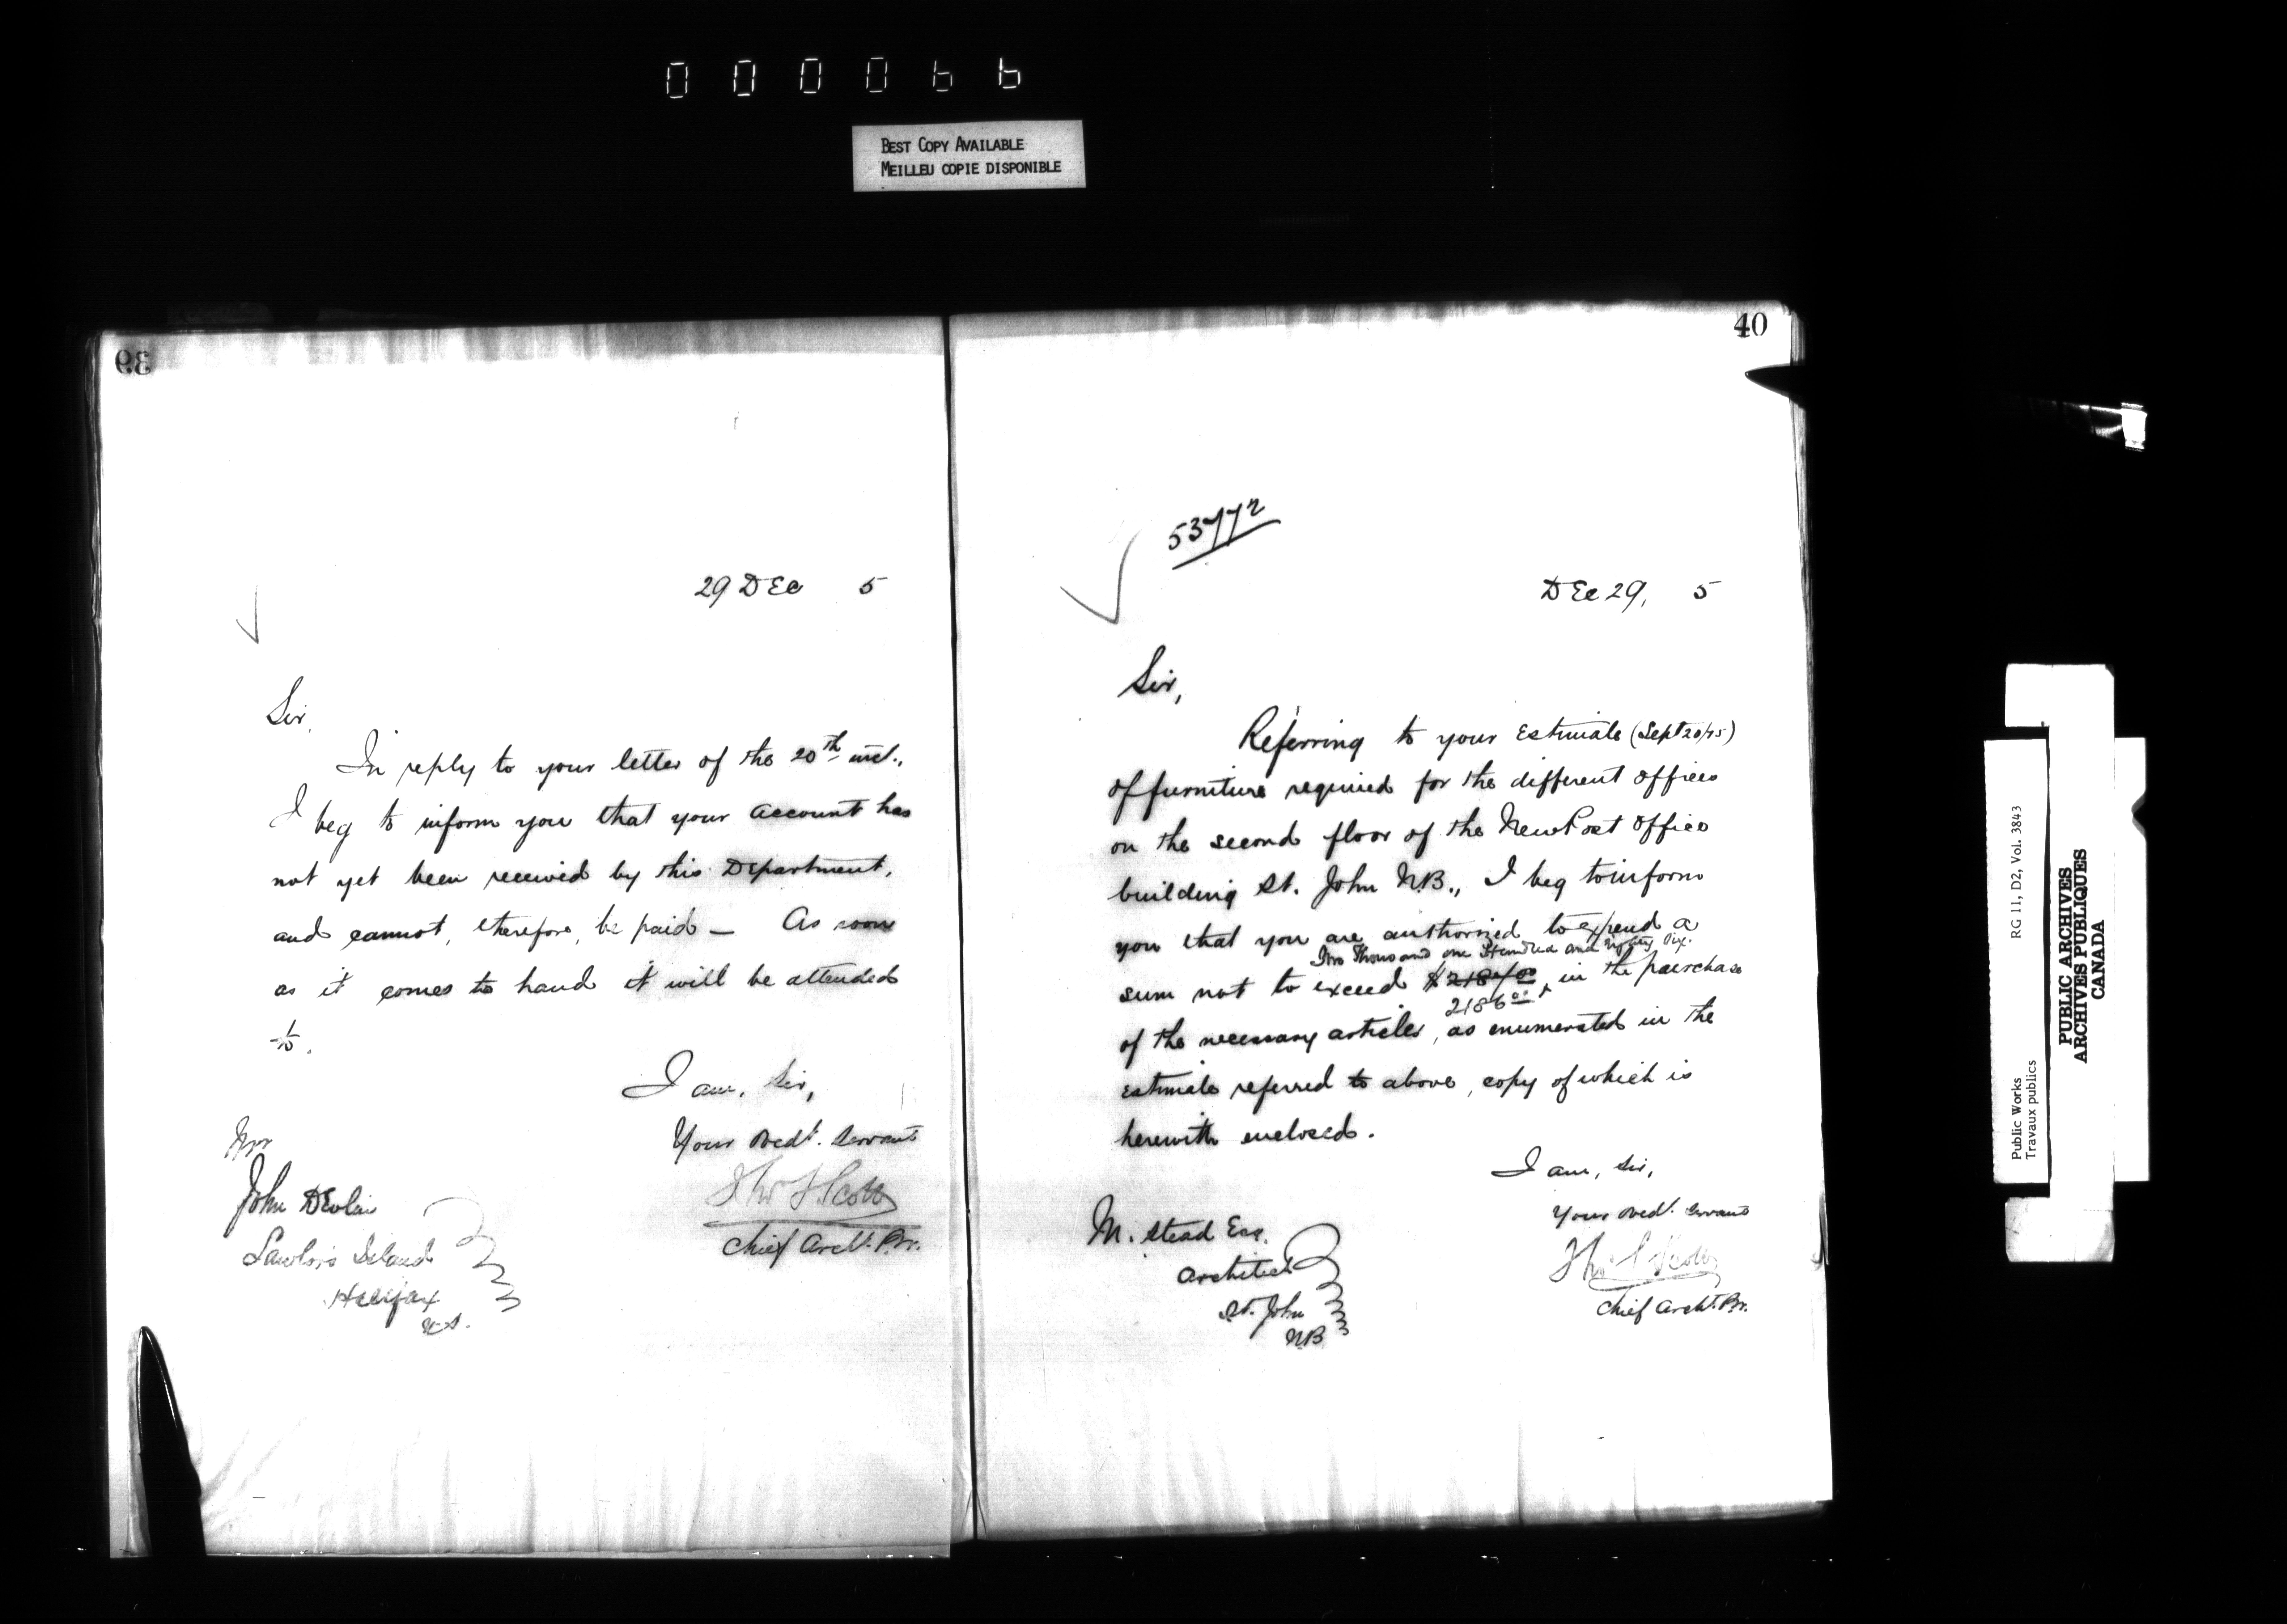 000066
BEST COPY AVAILABLE
MEILLEU COPIE DISPONIBLE
39
29 DEc 5
Sir,
In reply to your letter of the 20th inst.,
I beg to inform you that your account has
not yet been received by this Department,
and cannot, therefore, be paid — As soon
as it comes to hand it will be attended
to.
I am, Sir,
Your Obedt. Servant
Thos S Scott
Chief Archt. Br.
Mr
John Devlin
Lawlor's Island
Halifax
N.S.
40
53772
DEc 29, 5
Sir,
Referring to your Estimate (Sept 20/75)
of furniture required for the different offices
on the second floor of the New Post Office
building St. John N.B., I beg to inform
you that you are authorized to expend a
Two Thousand one Hundred and Eighty Six.
sum not to exceed in the purchase
2186.00
of the necessary articles, as enumerated in the
Estimate referred to above, copy of which is
herewith enclosed.
I am, Sir,
Your Obedt. Servant
Thos S Scott
Chief Archt. Br.
M. Stead Esq.
Architect
St. John
NB
Public Works RG 11, D2, Vol. 3843
Travaux publics
PUBLIC ARCHIVES
ARCHIVES PUBLIQUES
CANADA